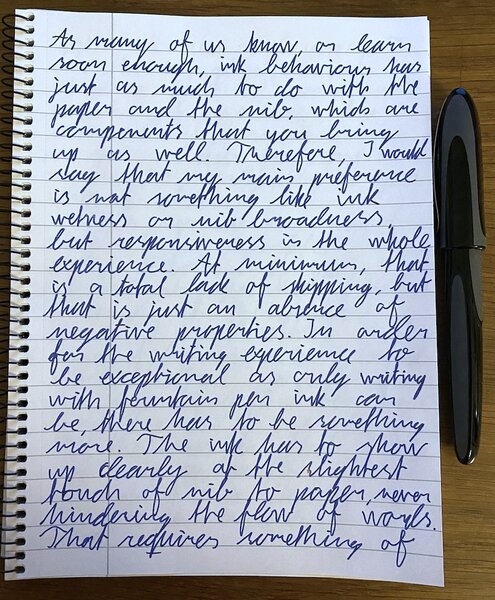 As many of us know, or learn
soon enough, ink behaviour has
just as much to do with the
paper and the nib, which are
components that you bring
up as well. Therefore, I would
say that my main preference
is not something like ink
wetness or nib broadness,
but responsiveness in the whole
experience. At minimum, that
is a total lack of skipping, but
that is just an absence of
negative properties. In order
for the writing experience to
be exceptional as only writing
with fountain pen ink can
be, there has to be something
more. The ink has to show
up clearly at the slightest
touch of nib to paper, never
hindering the flow of words.
That requires something of